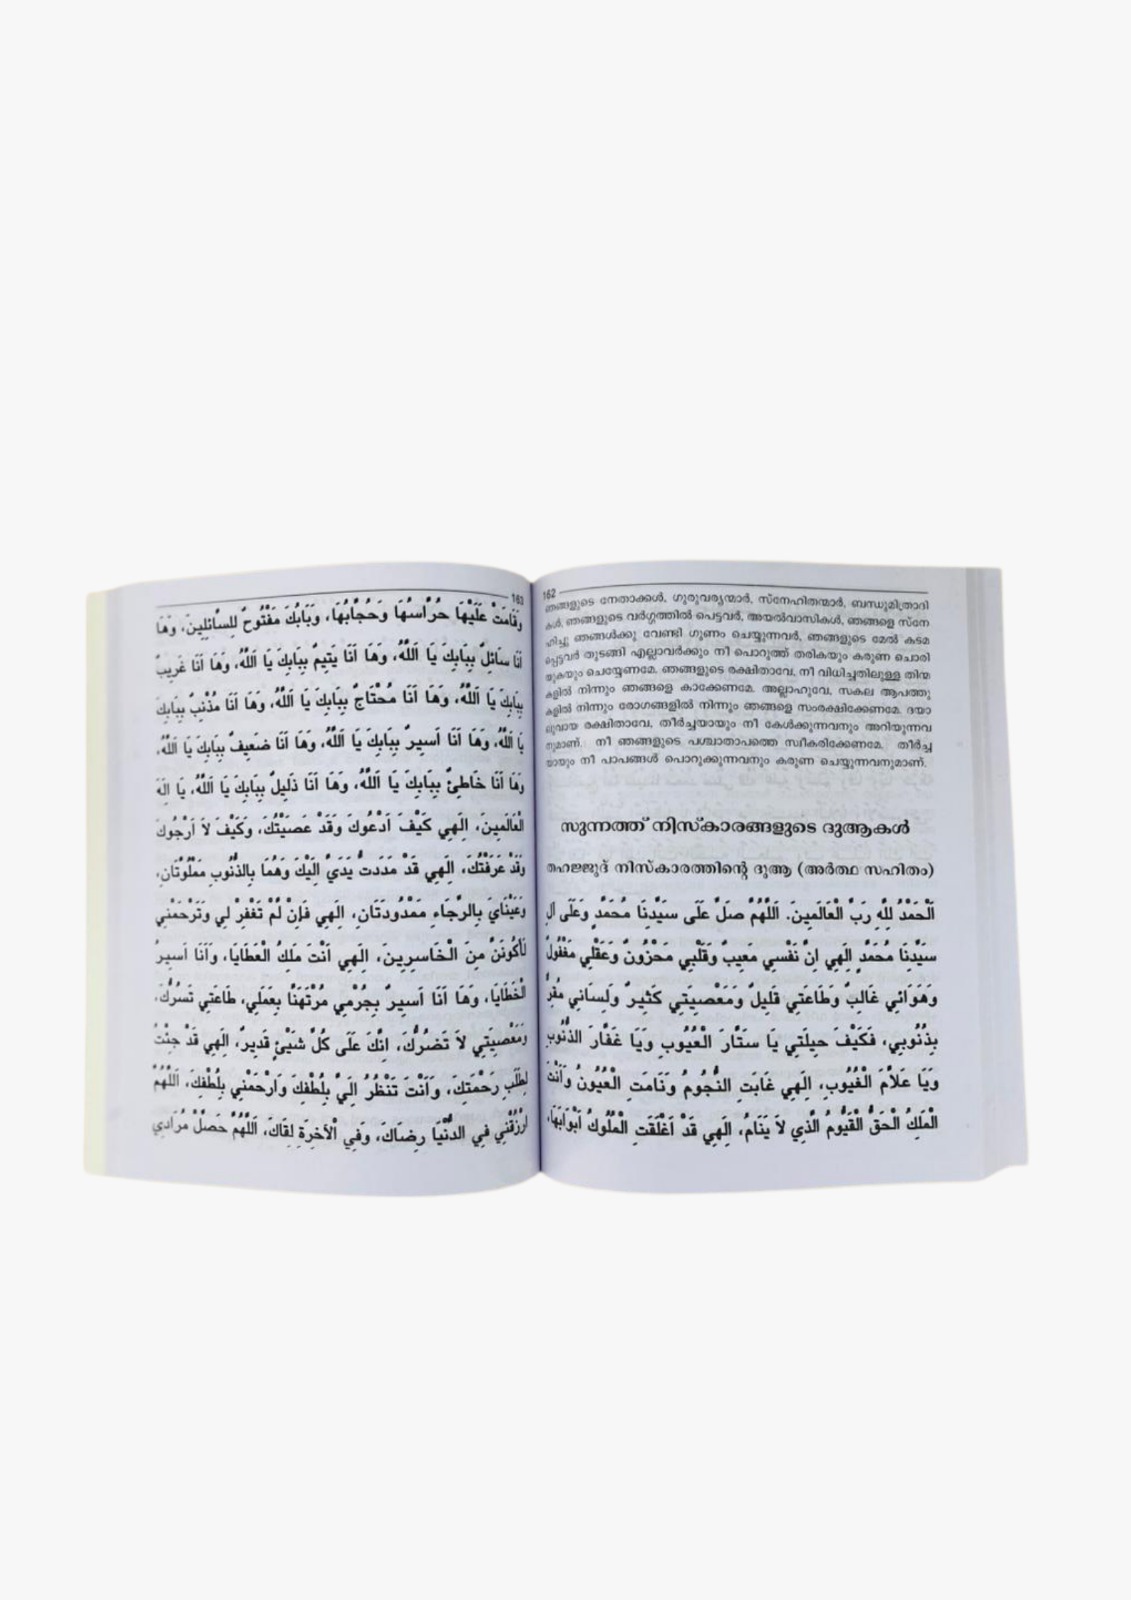 162
ഞങ്ങളുടെ നേതാക്കൾ, ഗുരുവര്യന്മാർ, സ്നേഹിതന്മാർ, ബന്ധുമിത്രാദി
കൾ, ഞങ്ങളുടെ വർഗ്ഗത്തിൽ പെട്ടവർ, അയൽവാസികൾ, ഞങ്ങളെ സ്നേ
ഹിച്ചു ഞങ്ങൾക്കു വേണ്ടി ഗുണം ചെയ്യുന്നവർ, ഞങ്ങളുടെ മേൽ കടമ
പ്പെട്ടവർ തുടങ്ങി എല്ലാവർക്കും നീ പൊറുത്ത് തരികയും കരുണ ചൊരി
യുകയും ചെയ്യേണമേ. ഞങ്ങളുടെ രക്ഷിതാവേ, നീ വിധിച്ചതിലുള്ള തിന്മ
കളിൽ നിന്നും ഞങ്ങളെ കാക്കേണമേ. അല്ലാഹുവേ, സകല ആപത്തു
കളിൽ നിന്നും രോഗങ്ങളിൽ നിന്നും ഞങ്ങളെ സംരക്ഷിക്കേണമേ. ദയാ
ലുവായ രക്ഷിതാവേ, തീർച്ചയായും നീ കേൾക്കുന്നവനും അറിയുന്നവ
നുമാണ്. നീ ഞങ്ങളുടെ പശ്ചാതാപത്തെ സ്വീകരിക്കേണമേ. തീർച്ച
യായും നീ പാപങ്ങൾ പൊറുക്കുന്നവനും കരുണ ചെയ്യുന്നവനുമാണ്.
സുന്നത്ത് നിസ്കാരങ്ങളുടെ ദുആകൾ
തഹജ്ജുദ് നിസ്കാരത്തിന്റെ ദുആ (അർത്ഥ സഹിതം)
اَلْحَمْدُ لِلّهِ رَبِّ الْعَالَمِينَ. اَللّهُمَّ صَلِّ عَلَى سَيِّدِنَا مُحَمَّدٍ وَعَلَى آلِ
سَيِّدِنَا مُحَمَّدٍ اِلَهِي اِنَّ نَفْسِي مَعِيبٌ وَقَلْبِي مَحْزُونٌ وَعَقْلِي مَغْفُولٌ
وَهَوَائِي غَالِبٌ وَطَاعَتِي قَلِيلٌ وَمَعْصِيَتِي كَثِيرٌ وَلِسَانِي مُقِرٌّ
بِذُنُوبِي، فَكَيْفَ حِيلَتِي يَا سَتَّارَ الْعُيُوبِ وَيَا غَفَّارَ الذُّنُوبِ
وَيَا عَلاَّمَ الْغُيُوبِ، اِلَهِي غَابَتِ النُّجُومُ وَنَامَتِ الْعُيُونُ وَاَنْتَ
الْمَلِكُ الْحَقُّ الْقَيُّومُ الَّذِي لاَ يَنَامُ، اِلَهِي قَدْ اَغْلَقَتِ الْمُلُوكُ اَبْوَابَهَا،
163
وَقَامَتْ عَلَيْهَا حُرَّاسُهَا وَحُجَّابُهَا، وَبَابُكَ مَفْتُوحٌ لِلسَّائِلِينَ، وَهَا
اَنَا سَائِلٌ بِبَابِكَ يَا اَللّهُ، وَهَا اَنَا يَتِيمٌ بِبَابِكَ يَا اَللّهُ، وَهَا اَنَا غَرِيبٌ
بِبَابِكَ يَا اَللّهُ، وَهَا اَنَا مُحْتَاجٌ بِبَابِكَ يَا اَللّهُ، وَهَا اَنَا مُذْنِبٌ بِبَابِكَ
يَا اَللّهُ، وَهَا اَنَا اَسِيرٌ بِبَابِكَ يَا اَللّهُ، وَهَا اَنَا ضَعِيفٌ بِبَابِكَ يَا اَللّهُ،
وَهَا اَنَا خَاطِئٌ بِبَابِكَ يَا اَللّهُ، وَهَا اَنَا ذَلِيلٌ بِبَابِكَ يَا اَللّهُ، يَا اِلَهَ
الْعَالَمِينَ، اِلَهِي كَيْفَ اَدْعُوكَ وَقَدْ عَصَيْتُكَ، وَكَيْفَ لاَ اَرْجُوكَ
وَقَدْ عَرَفْتُكَ، اِلَهِي قَدْ مَدَدتُ يَدَيَّ اِلَيْكَ وَهُمَا بِالذُّنُوبِ مَمْلُوَّتَانِ،
وَعَيْنَايَ بِالرَّجَاءِ مَمْدُودَتَانِ، اِلَهِي فَاِنْ لَمْ تَغْفِرْ لِي وَتَرْحَمْنِي
لَأَكُونَنَّ مِنَ الْخَاسِرِينَ، اِلَهِي اَنْتَ مَلِكُ الْعَطَايَا، وَاَنَا اَسِيرُ
الْخَطَايَا، وَهَا اَنَا اَسِيرٌ بِجُرْمِي مُرْتَهَنًا بِعَمَلِي، طَاعَتِي تَسُرُّكَ،
وَمَعْصِيَتِي لاَ تَضُرُّكَ، اِنَّكَ عَلَى كُلِّ شَيْئٍ قَدِيرٌ، اِلَهِي قَدْ جِئْتُ
لِطَلَبِ رَحْمَتِكَ، وَاَنْتَ تَنْظُرُ اِلَيَّ بِلُطْفِكَ وَارْحَمْنِي بِلُطْفِكَ، اَللّهُمَّ
ارْزُقْنِي فِي الدُّنْيَا رِضَاكَ، وَفِي اْلآخِرَةِ لِقَاكَ، اَللّهُمَّ حَصِّلْ مُرَادِي